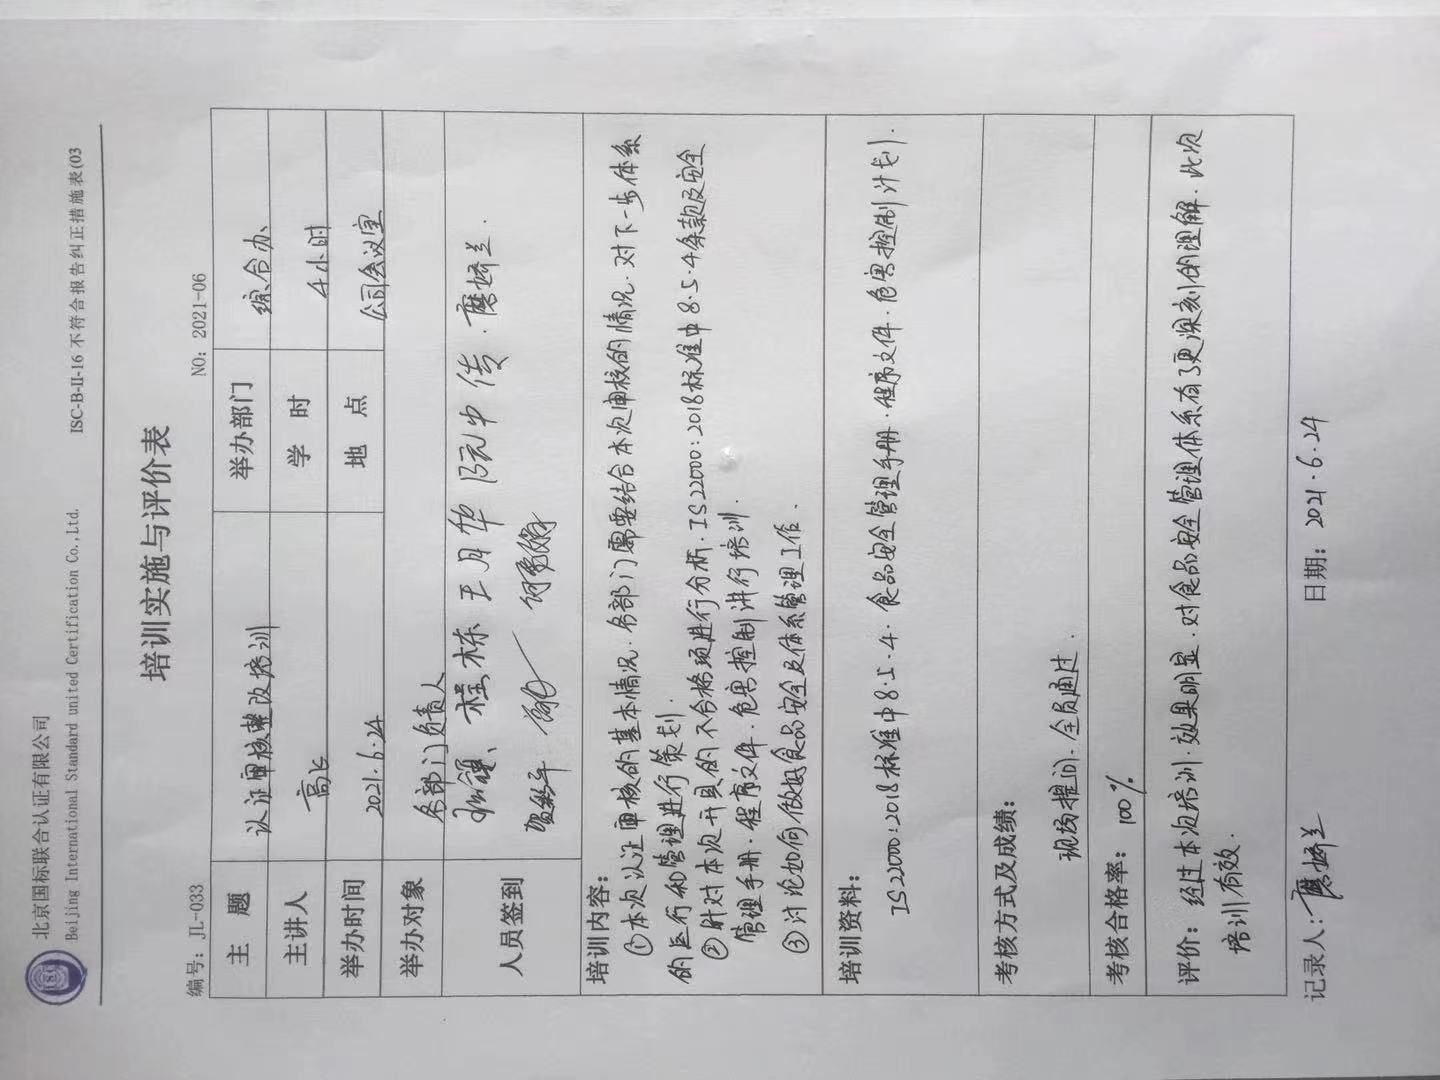 北京国标联合认证有限公司
Beijing International Standard united Certification Co.,Ltd. ISC-B-II-16 不符合报告纠正措施表(03
培训实施与评价表
编号：JL-033 NO：2021-06
主 题 认证审核整改培训 举办部门 综合办
主讲人 高飞 学 时 4小时
举办时间 2021.6.24 地 点 公司会议室
举办对象 各部门负责人
人员签到 程栋 王月华 阮中传
培训内容：
①本次认证审核的基本情况.各部门需要结合本次审核的情况.对下一步体系
的运行和管理进行策划.
②针对本次开具的不合格项进行分析.IS22000:2018标准中8.5.4条款及安全
管理手册.程序文件.危害控制进行培训.
③讨论如何做好食品安全及体系管理工作.
培训资料：
IS22000:2018标准中8.5.4.食品安全管理手册.程序文件.危害控制计划.
考核方式及成绩：
现场提问.全员通过.
考核合格率：100%
评价：经过本次培训.效果明显.对食品安全管理体系有了更深刻的理解.此次
培训有效.
记录人： 日期：2021.6.24